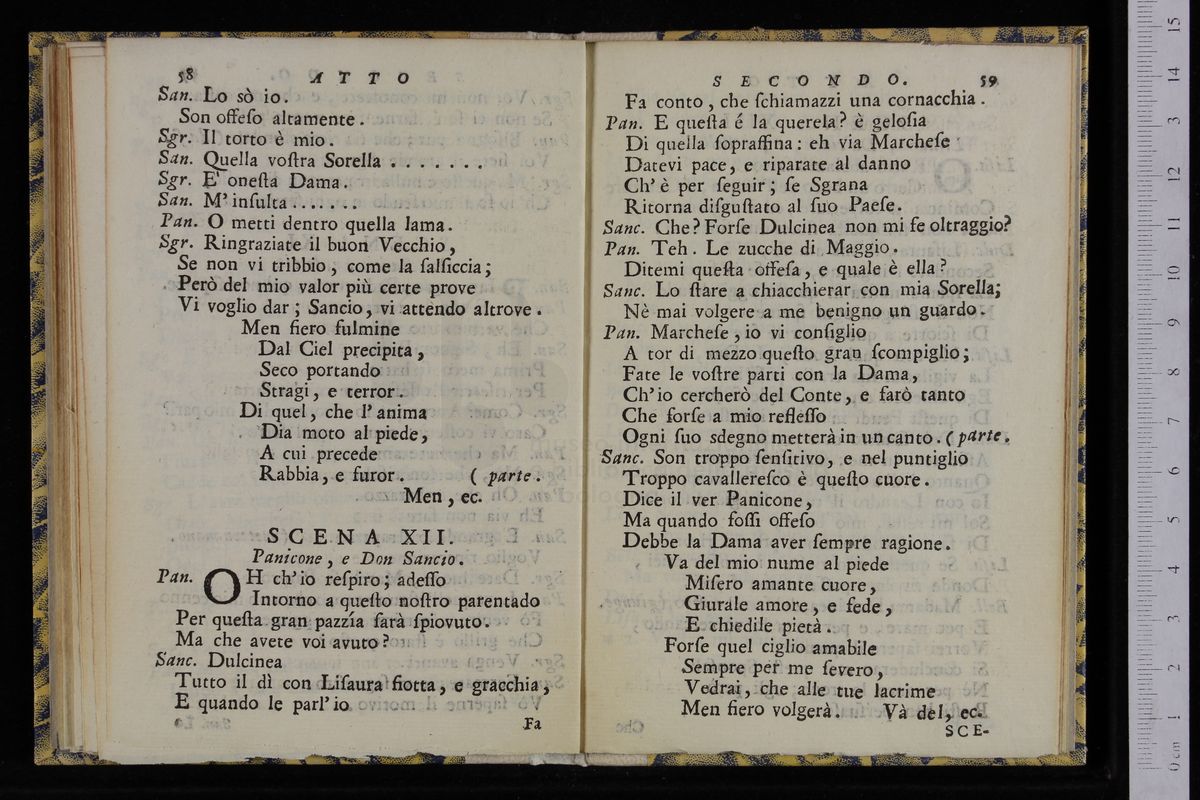 58 ATTO
San. Lo sò io.
Son offeſo altamente.
Sgr. Il torto è mio.
San. Quella voſtra Sorella . . . . . . .
Sgr. E' oneſta Dama.
San. M' inſulta . . . . . . .
Pan. O metti dentro quella lama.
Sgr. Ringraziate il buon Vecchio,
Se non vi tribbio, come la ſalſiccia;
Però del mio valor più certe prove
Vi voglio dar; Sancio, vi attendo altrove.
Men fiero fulmine
Dal Ciel precipita,
Seco portando
Stragi, e terror.
Di quel, che l' anima
Dia moto al piede,
A cui precede
Rabbia, e furor. ( parte.
Men, ec.
SCENA XII.
Panicone, e Don Sancio.
Pan. OH ch' io reſpiro; adeſſo
Intorno a queſto noſtro parentado
Per queſta gran pazzia ſarà ſpiovuto.
Ma che avete voi avuto?
Sanc. Dulcinea
Tutto il dì con Liſaura fiotta, e gracchia,
E quando le parl' io
Fa
SECONDO. 59
Fa conto, che ſchiamazzi una cornacchia.
Pan. E queſta é la querela? è geloſia
Di quella ſopraffina: eh via Marcheſe
Datevi pace, e riparate al danno
Ch' è per ſeguir; ſe Sgrana
Ritorna diſguſtato al ſuo Paeſe.
Sanc. Che? Forſe Dulcinea non mi fe oltraggio?
Pan. Teh. Le zucche di Maggio.
Ditemi queſta offeſa, e quale è ella?
Sanc. Lo ſtare a chiacchierar con mia Sorella;
Nè mai volgere a me benigno un guardo.
Pan. Marcheſe, io vi conſiglio
A tor di mezzo queſto gran ſcompiglio;
Fate le voſtre parti con la Dama,
Ch' io cercherò del Conte, e farò tanto
Che forſe a mio refleſſo
Ogni ſuo sdegno metterà in un canto. ( parte.
Sanc. Son troppo ſenſitivo, e nel puntiglio
Troppo cavallereſco è queſto cuore.
Dice il ver Panicone,
Ma quando foſſi offeſo
Debbe la Dama aver ſempre ragione.
Va del mio nume al piede
Miſero amante cuore,
Giurale amore, e fede,
E chiedile pietà.
Forſe quel ciglio amabile
Sempre per me ſevero,
Vedrai, che alle tue lacrime
Men fiero volgerà. Và del, ec.
SCE-